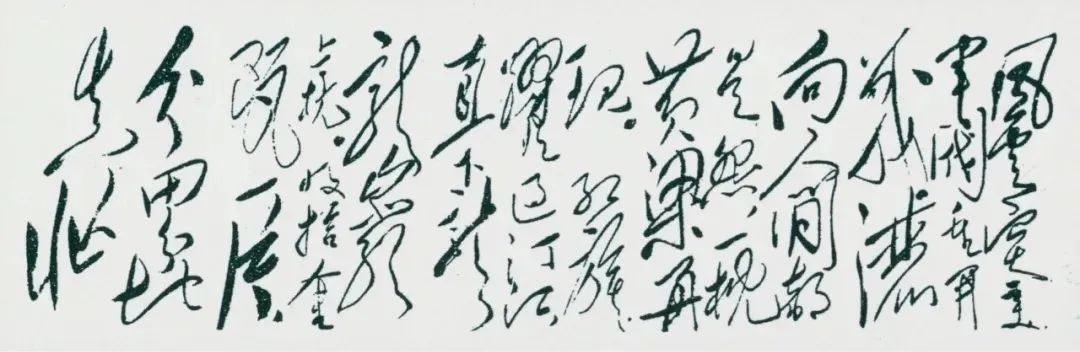 风云突变
军阀重开
战 洒
向人间都
是怨，一枕
黄粱再
现。红旗
躍过汀江，
直下
龙岩
上杭。收拾金
瓯一片，
分田分地
真忙